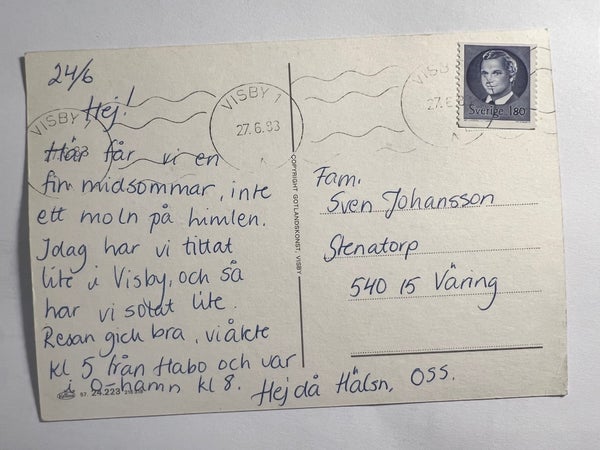 24/6
Hej!
Här får vi en
fin midsommar, inte
ett moln på himlen.
Idag har vi tittat
lite i Visby, och så
har vi solat lite.
Resan gick bra, vi åkte
kl 5 från Habo och var
i O-hamn kl 8.
Hej då Hälsn. OSS.
VISBY 1
27.6.83
VISBY
Sverige 180
COPYRIGHT GOTLANDSKONST, VISBY
Fam.
Sven Johansson
Stenatorp
540 15 Väring
97. 24.223